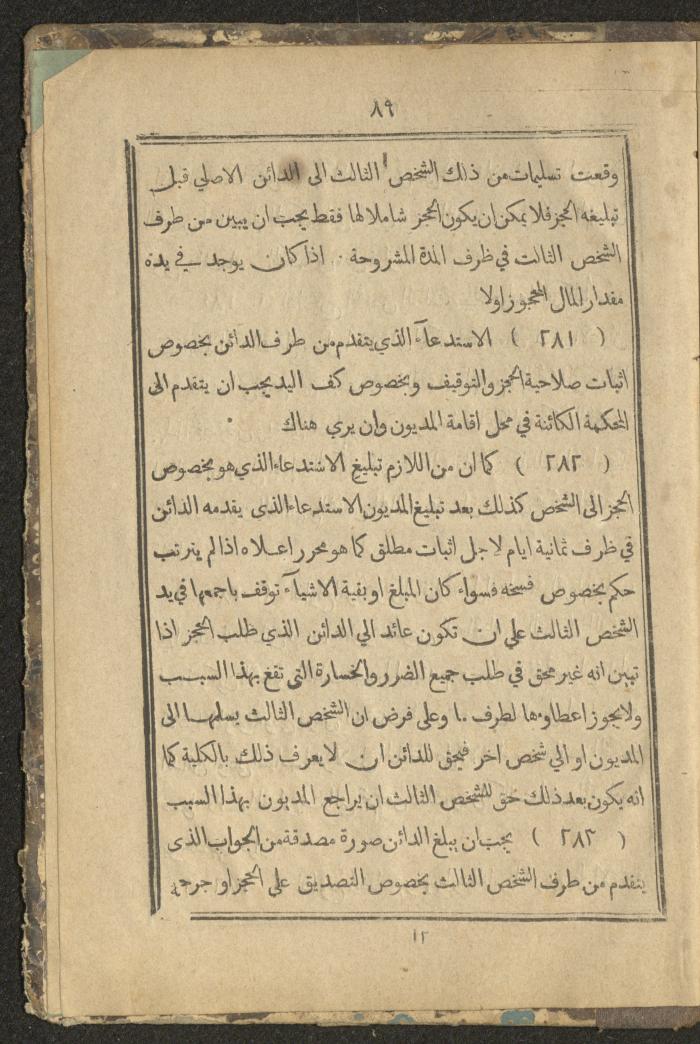 ٨٩
وقعت تسليمات من ذلك الشخص الثالث الى الدائن الاصلي قبل
تبليغه الحجز فلا يمكن ان يكون الحجز شاملا لها فقط يجب ان يبين من طرف
الشخص الثالث في ظرف المدة المشروحة . اذا كان يوجد في يده
مقدار المال المحجوز اولا
( ٢٨١ ) الاستدعآء الذي يتقدم من طرف الدائن بخصوص
اثبات صلاحية الحجز والتوقيف وبخصوص كف اليد يجب ان يتقدم الى
المحكمة الكائنة في محل اقامة المديون وان يري هناك
( ٢٨٢ ) كما ان من اللازم تبليغ الاستدعاء الذي هو بخصوص
الحجز الى الشخص كذلك بعد تبليغ المديون الاستدعاء الذى يقدمه الدائن
في ظرف ثمانية ايام لاجل اثبات مطلق كما هو محرر اعلاه اذا لم يترتب
حكم بخصوص فسخه فسواء كان المبلغ او بقية الاشيآء توقف باجمعها في يد
الشخص الثالث على ان تكون عائد الي الدائن الذي طلب الحجز اذا
تبين انه غير محق في طلب جميع الضرر والخسارة التى تقع بهذا السبب
ولا يجوز اعطاوءها لطرف ما وعلى فرض ان الشخص الثالث يسلمها الى
المديون او الي شخص اخر فيحق للدائن ان لا يعرف ذلك بالكلية كما
انه يكون بعد ذلك حق للشخص الثالث ان يراجع المديون بهذا السبب
( ٢٨٣ ) يجب ان يبلغ الدائن صورة مصدقة من الجواب الذى
يتقدم من طرف الشخص الثالث بخصوص التصديق على الحجز او جرحه
١٢